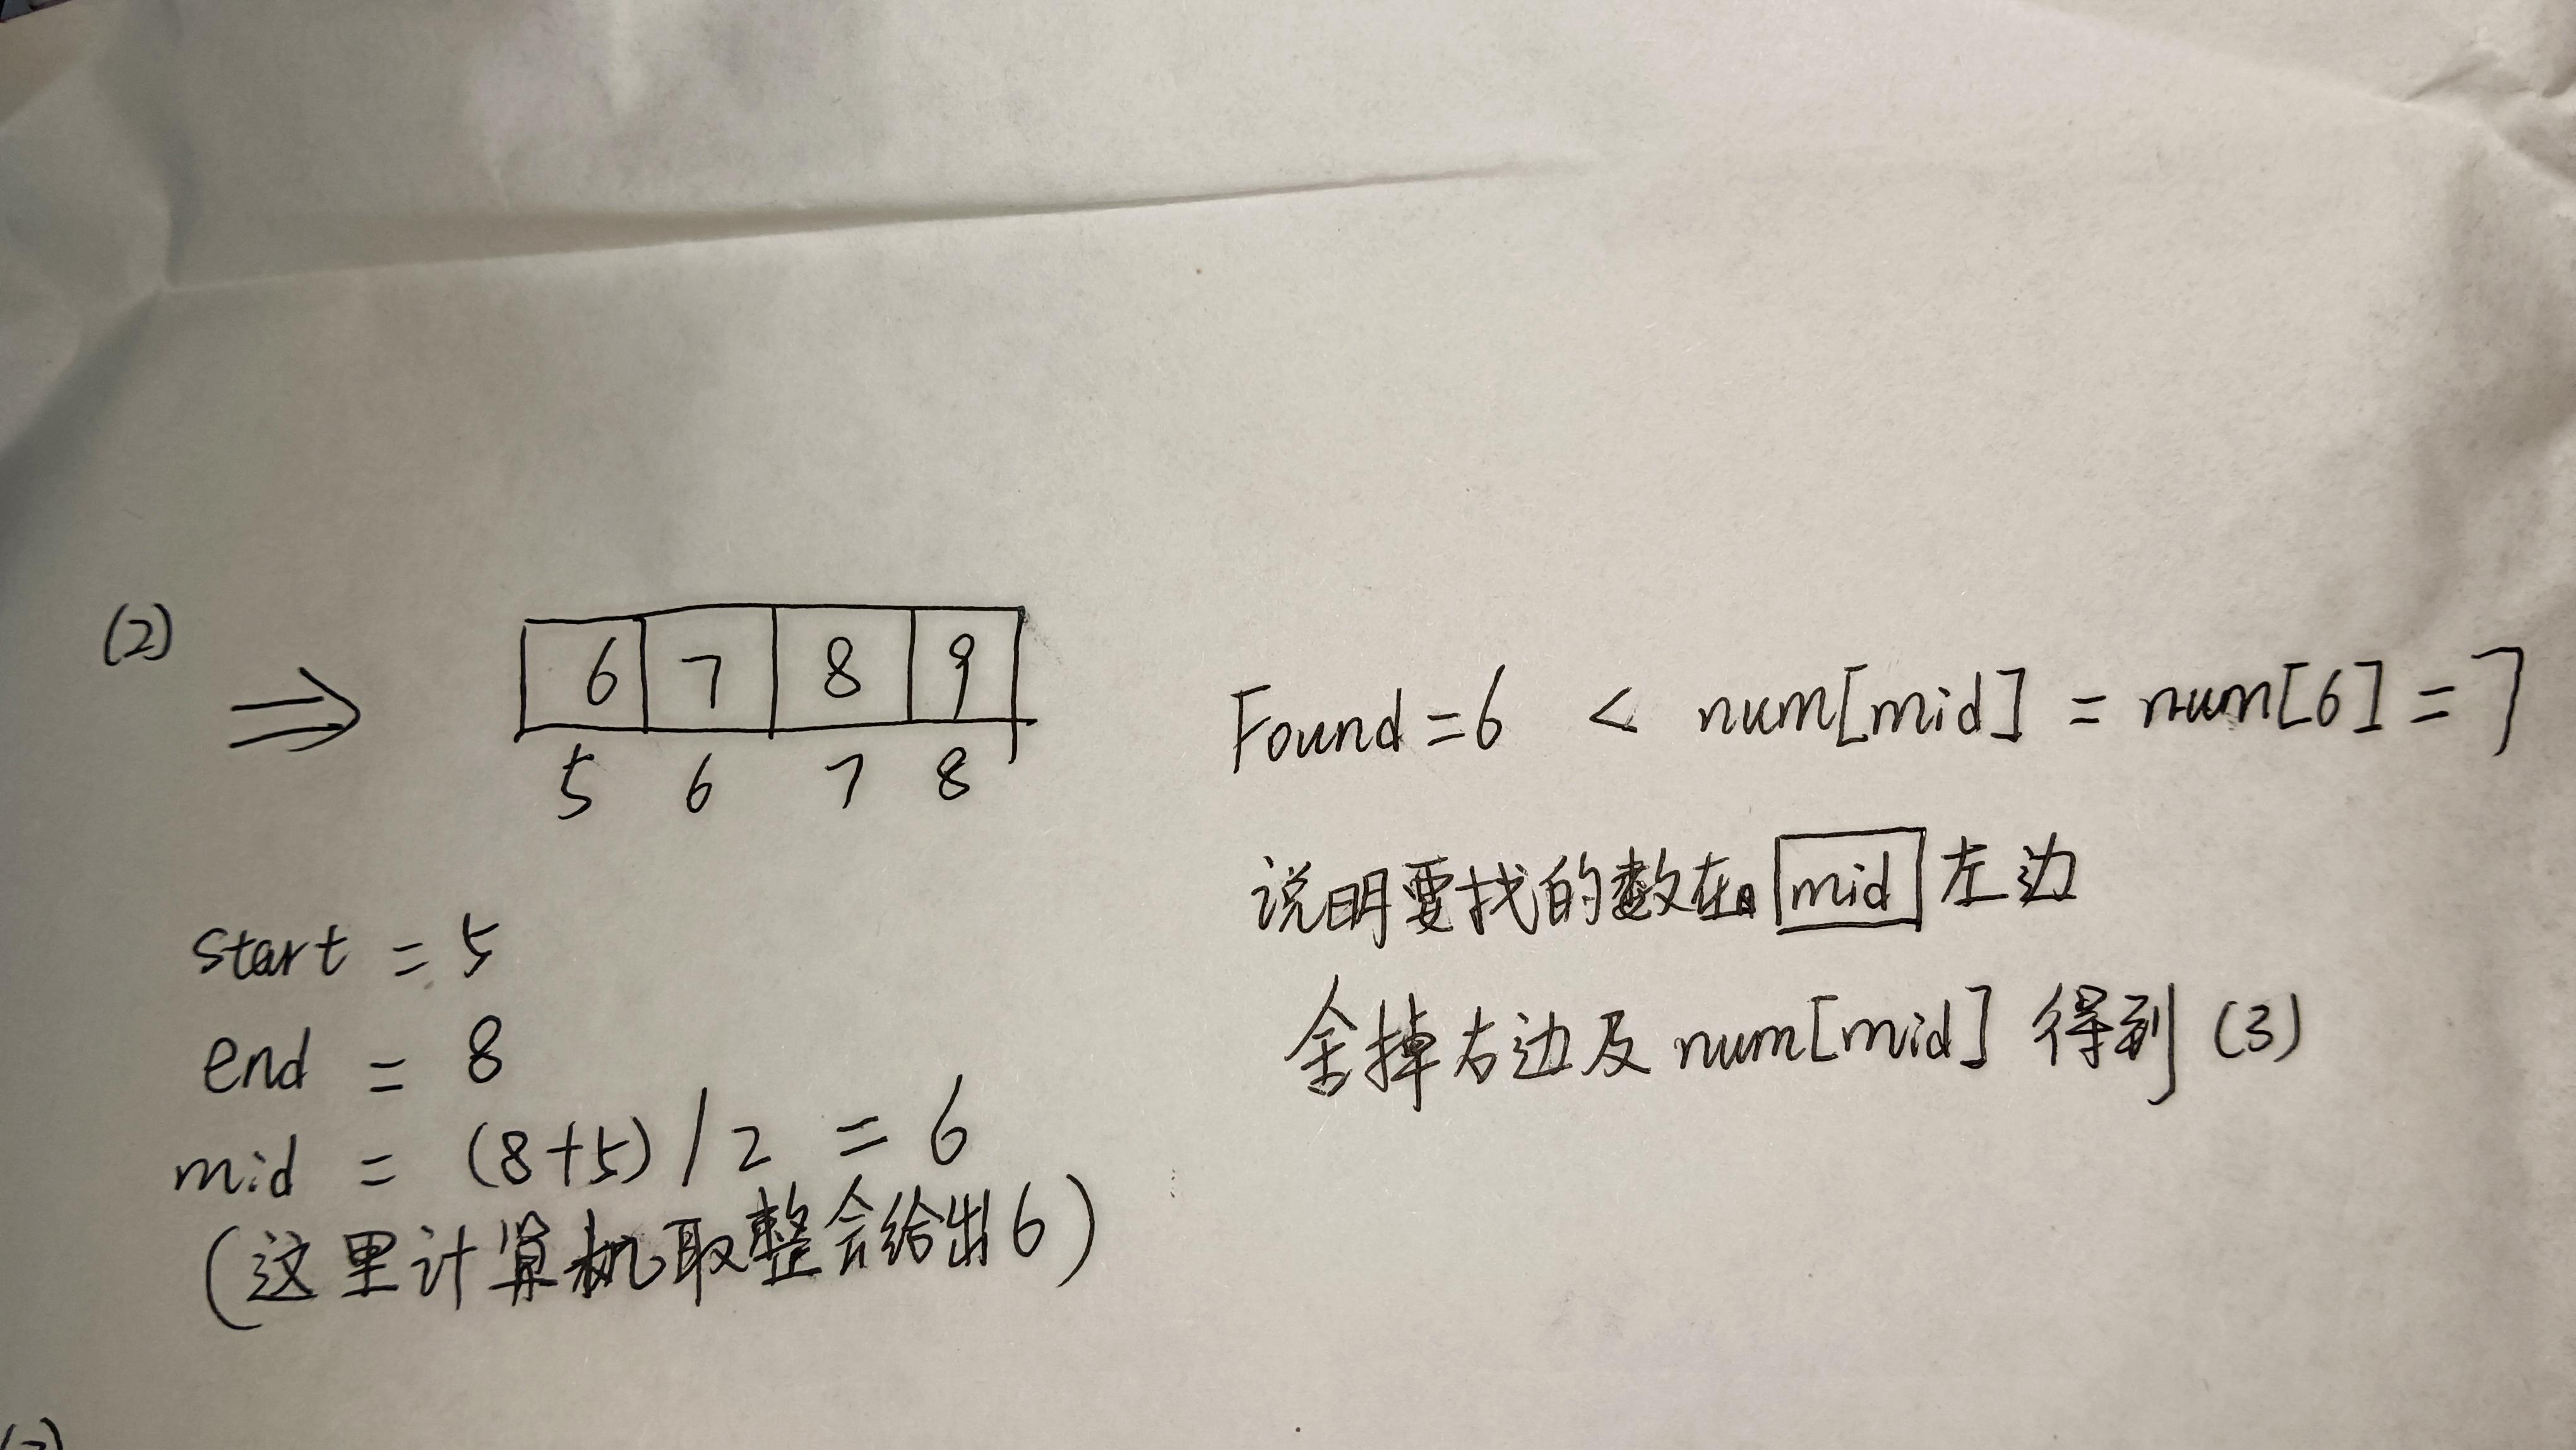 (2)
⇒ 6 7 8 9
5 6 7 8
start = 5
end = 8
mid = (8+5) / 2 = 6
(这里计算机取整会给出6)
Found = 6 < num[mid] = num[6] = 7
说明要找的数在 mid 左边
舍掉右边及 num[mid] 得到 (3)